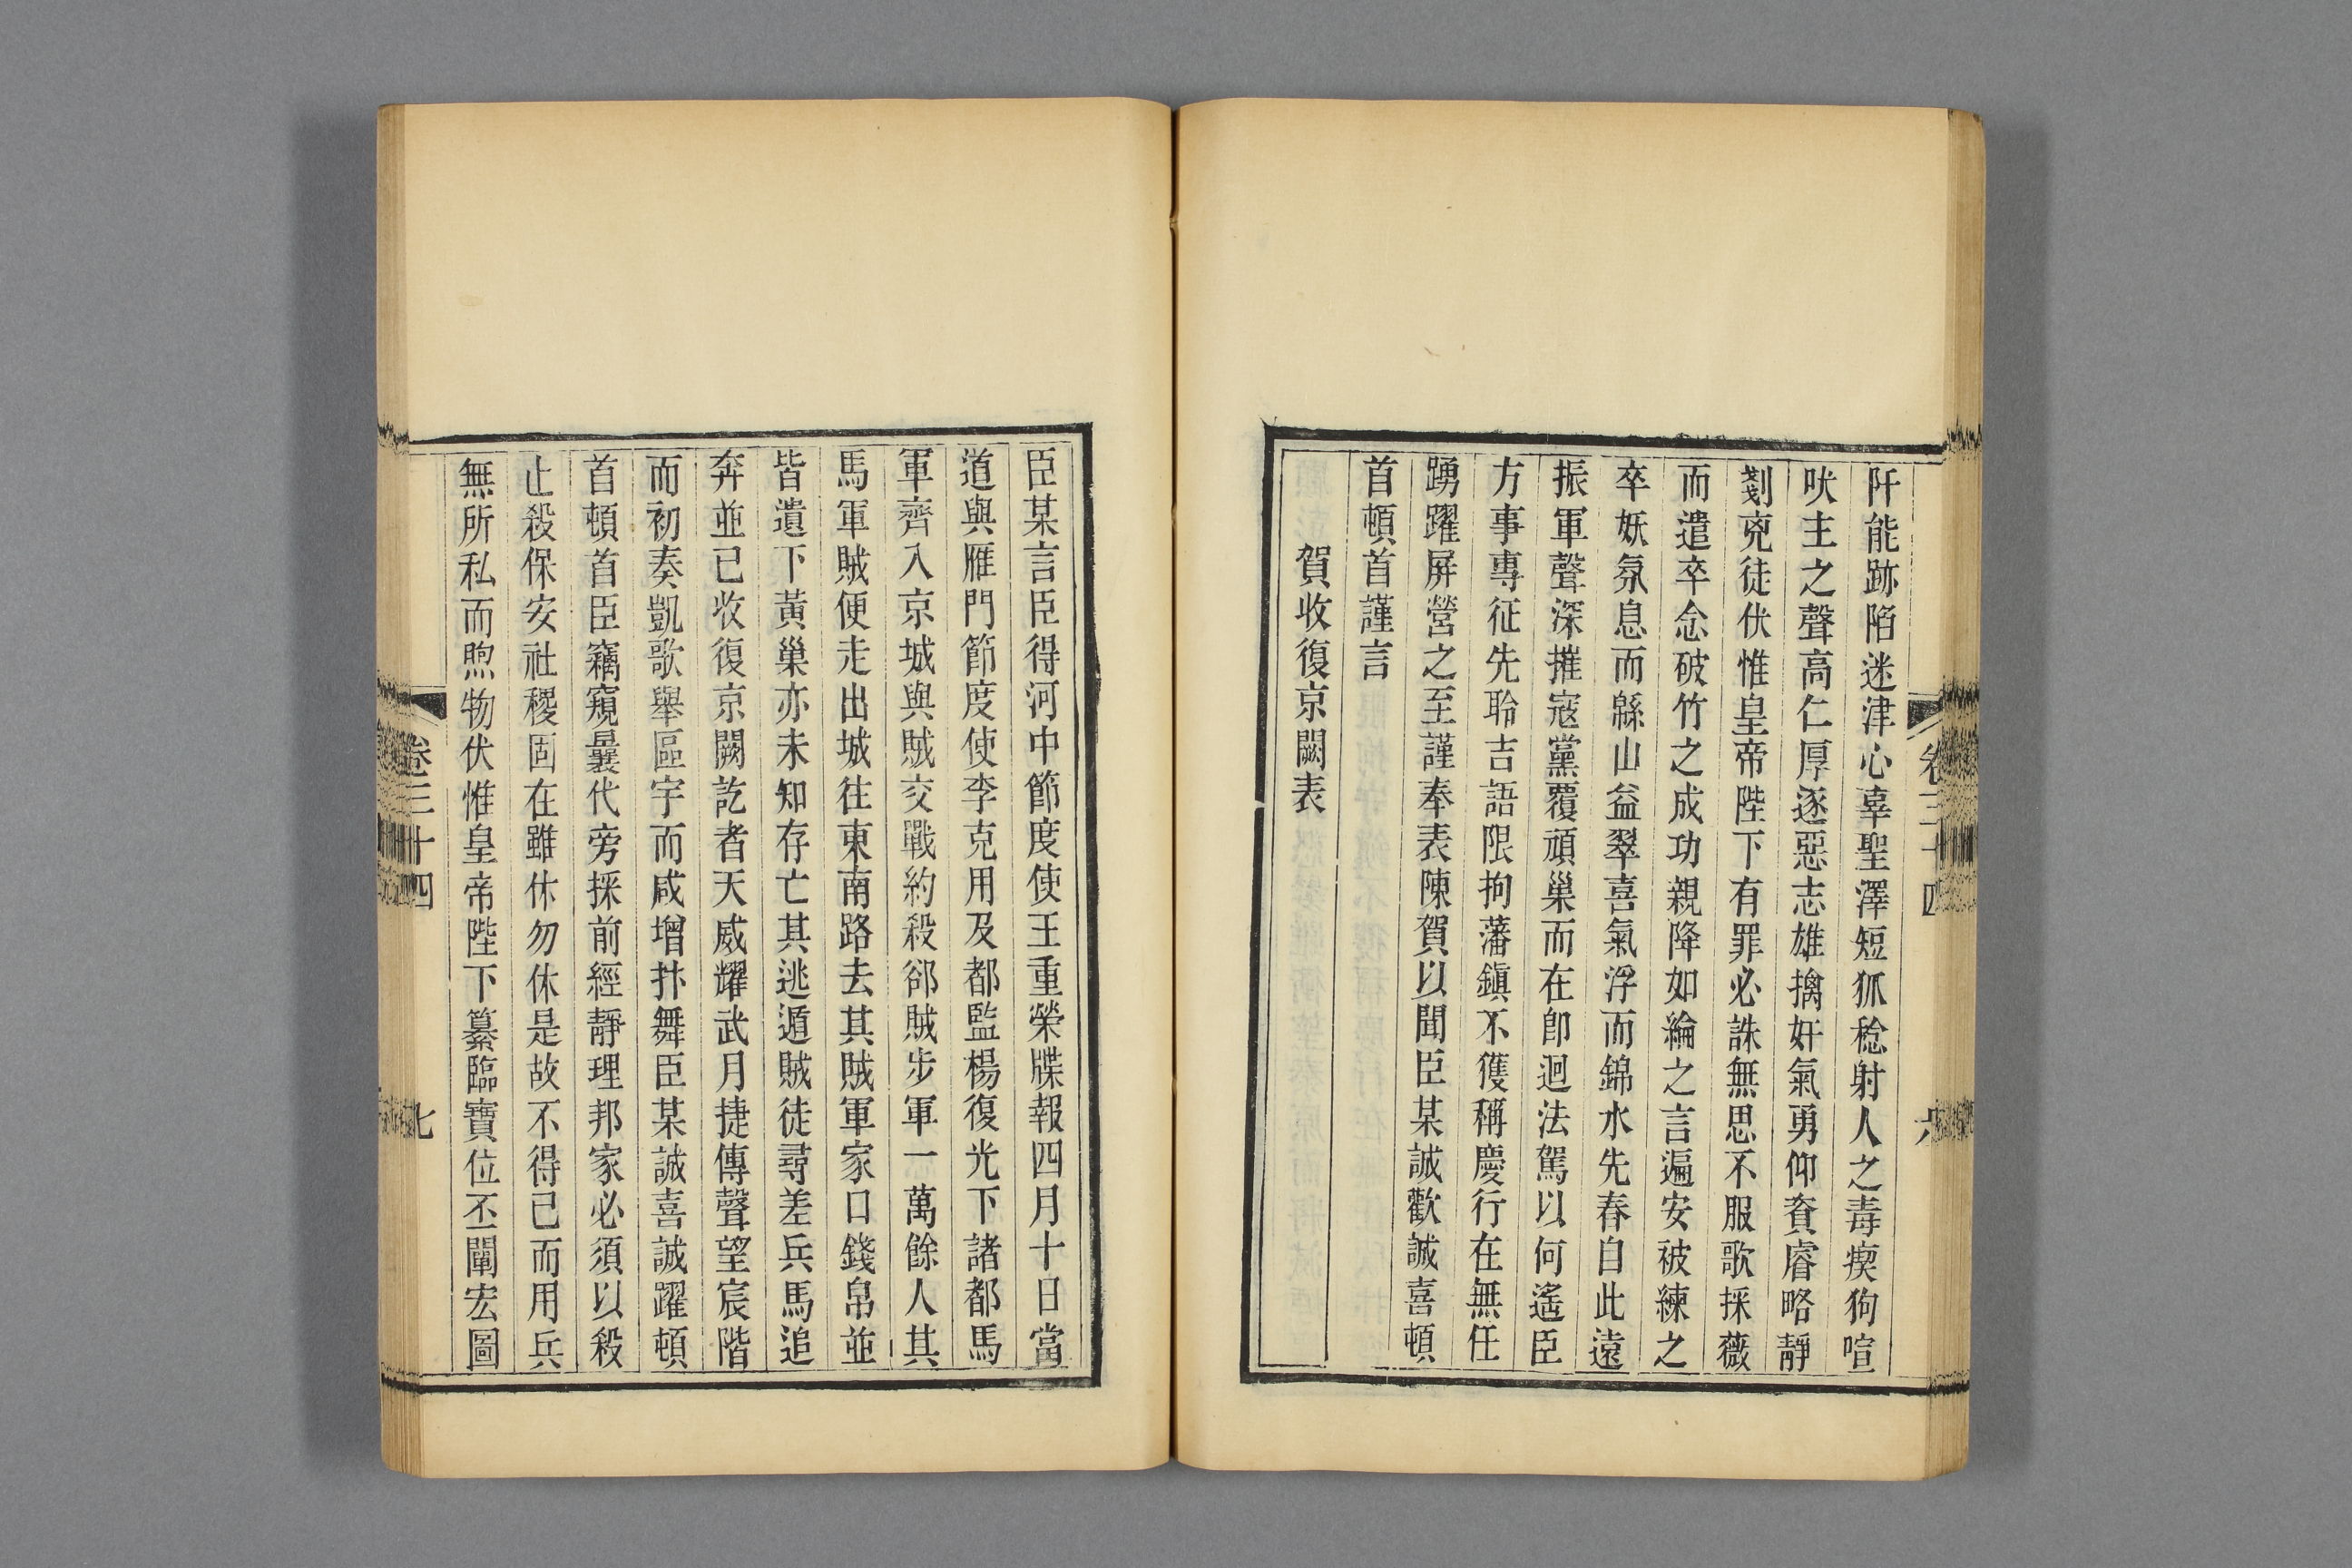 阡能跡陷迷津心辜聖澤短狐稔射人之毒瘈狗喧
吠主之聲高仁厚逐惡志雄擒奸氣勇仰賚睿略靜
剗兇徒伏惟皇帝陛下有罪必誅無思不服歌採薇
而遣卒念破竹之成功親降如綸之言遍安被練之
卒妖氛息而緜山益翠喜氣浮而錦水先春自此遠
振軍聲深摧寇黨覆頑巢而在卽迴法駕以何遙臣
方事專征先聆吉語限拘藩鎭不獲稱慶行在無任
踴躍屏營之至謹奉表陳賀以聞臣某誠歡誠喜頓
首頓首謹言
賀收復京闕表
臣某言臣得河中節度使王重榮牒報四月十日當
道與雁門節度使李克用及都監楊復光下諸都馬
軍齊入京城與賊交戰約殺郤賊步軍一萬餘人其
馬軍賊便走出城往東南路去其賊軍家口錢帛並
皆遺下黃巢亦未知存亡其逃遁賊徒尋差兵馬追
奔並已收復京闕訖者天威耀武月捷傳聲望宸階
而初奏凱歌舉區宇而咸增抃舞臣某誠喜誠躍頓
首頓首臣竊窺曩代旁採前經靜理邦家必須以殺
止殺保安社稷固在雖休勿休是故不得已而用兵
無所私而煦物伏惟皇帝陛下纂臨寶位丕闡宏圖
卷三十四
七